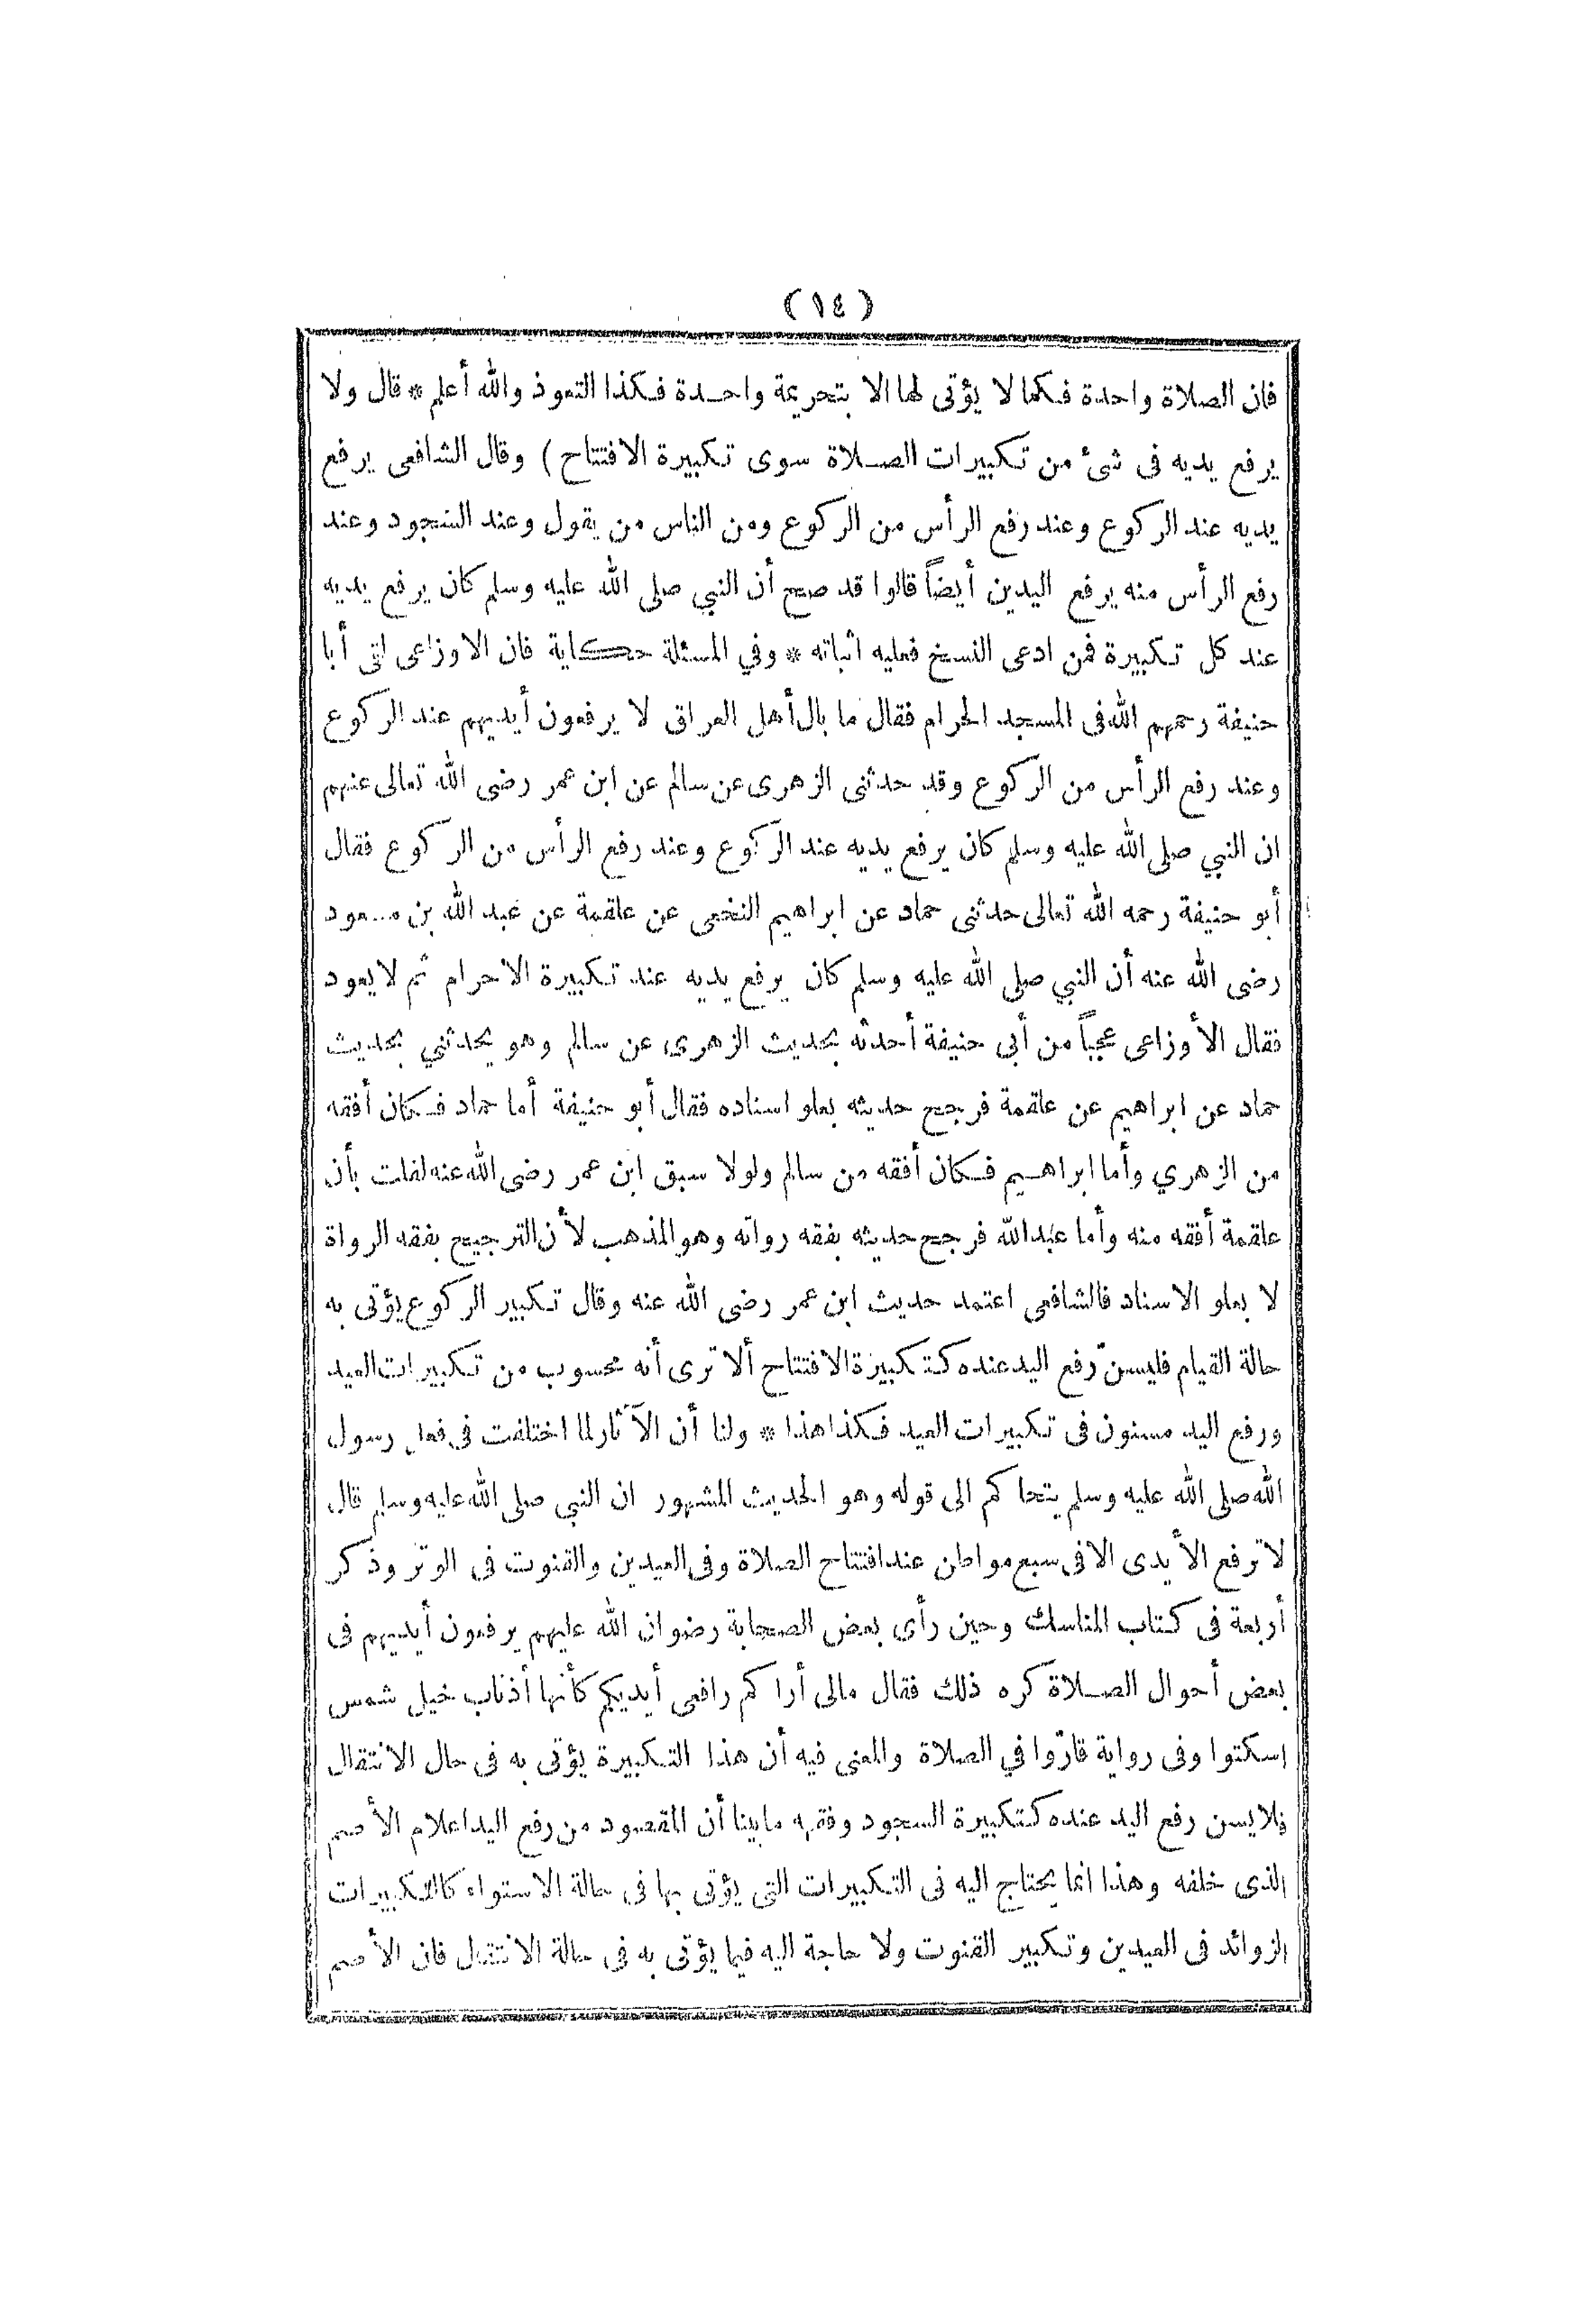 (١٤)
فان الصلاة واحدة فكما لا يؤتى لها الا بتحريمة واحدة فكذا التعوذ والله أعلم * قال ولا
يرفع يديه فى شئ من تكبيرات الصلاة سوى تكبيرة الافتتاح ) وقال الشافعى يرفع
يديه عند الركوع وعند رفع الرأس من الركوع ومن الناس من يقول وعند السجود وعند
رفع الرأس منه يرفع اليدين أيضاً قالوا قد صح أن النبي صلى الله عليه وسلم كان يرفع يديه
عند كل تكبيرة فمن ادعى النسخ فعليه اثباته * وفي المسئلة حكاية فان الاوزاعى لقى أبا
حنيفة رحمهم الله فى المسجد الحرام فقال ما بال أهل العراق لا يرفعون أيديهم عند الركوع
وعند رفع الرأس من الركوع وقد حدثنى الزهرى عن سالم عن ابن عمر رضى الله تعالى عنهم
ان النبي صلى الله عليه وسلم كان يرفع يديه عند الركوع وعند رفع الرأس من الركوع فقال
أبو حنيفة رحمه الله تعالى حدثنى حماد عن ابراهيم النخعى عن علقمة عن عبد الله بن مسعود
رضى الله عنه أن النبي صلى الله عليه وسلم كان يرفع يديه عند تكبيرة الاحرام ثم لا يعود
فقال الأوزاعى عجباً من أبى حنيفة أحدثه بحديث الزهرى عن سالم وهو يحدثني بحديث
حماد عن ابراهيم عن علقمة فرجح حديثه بعلو اسناده فقال أبو حنيفة أما حماد فكان أفقه
من الزهري وأما ابراهيم فكان أفقه من سالم ولولا سبق ابن عمر رضى الله عنه لقلت بأن
علقمة أفقه منه وأما عبد الله فرجح حديثه بفقه رواته وهو المذهب لأن الترجيح بفقه الرواة
لا بعلو الاسناد فالشافعى اعتمد حديث ابن عمر رضى الله عنه وقال تكبير الركوع يؤتى به
حالة القيام فليسنّ رفع اليد عنده كتكبيرة الافتتاح ألا ترى أنه محسوب من تكبيرات العيد
ورفع اليد مسنون فى تكبيرات العيد فكذا هذا * ولنا أن الآثار لما اختلفت فى فعل رسول
الله صلى الله عليه وسلم يتحاكم الى قوله وهو الحديث المشهور ان النبي صلى الله عليه وسلم قال
لا ترفع الأيدى الا فى سبع مواطن عند افتتاح الصلاة وفى العيدين والقنوت فى الوتر وذكر
أربعة فى كتاب المناسك وحين رأى بعض الصحابة رضوان الله عليهم يرفعون أيديهم فى
بعض أحوال الصلاة كره ذلك فقال مالى أراكم رافعى أيديكم كأنها أذناب خيل شمس
اسكتوا وفى رواية قارّوا في الصلاة والمعنى فيه أن هذا التكبيرة يؤتى به فى حال الانتقال
فلا يسن رفع اليد عنده كتكبيرة السجود وفقهه ما بينا أن المقصود من رفع اليد اعلام الأصم
الذى خلفه وهذا انما يحتاج اليه فى التكبيرات التى يؤتى بها فى حالة الاستواء كالتكبيرات
الزوائد فى العيدين وتكبير القنوت ولا حاجة اليه فيما يؤتى به فى حالة الانتقال فان الأصم